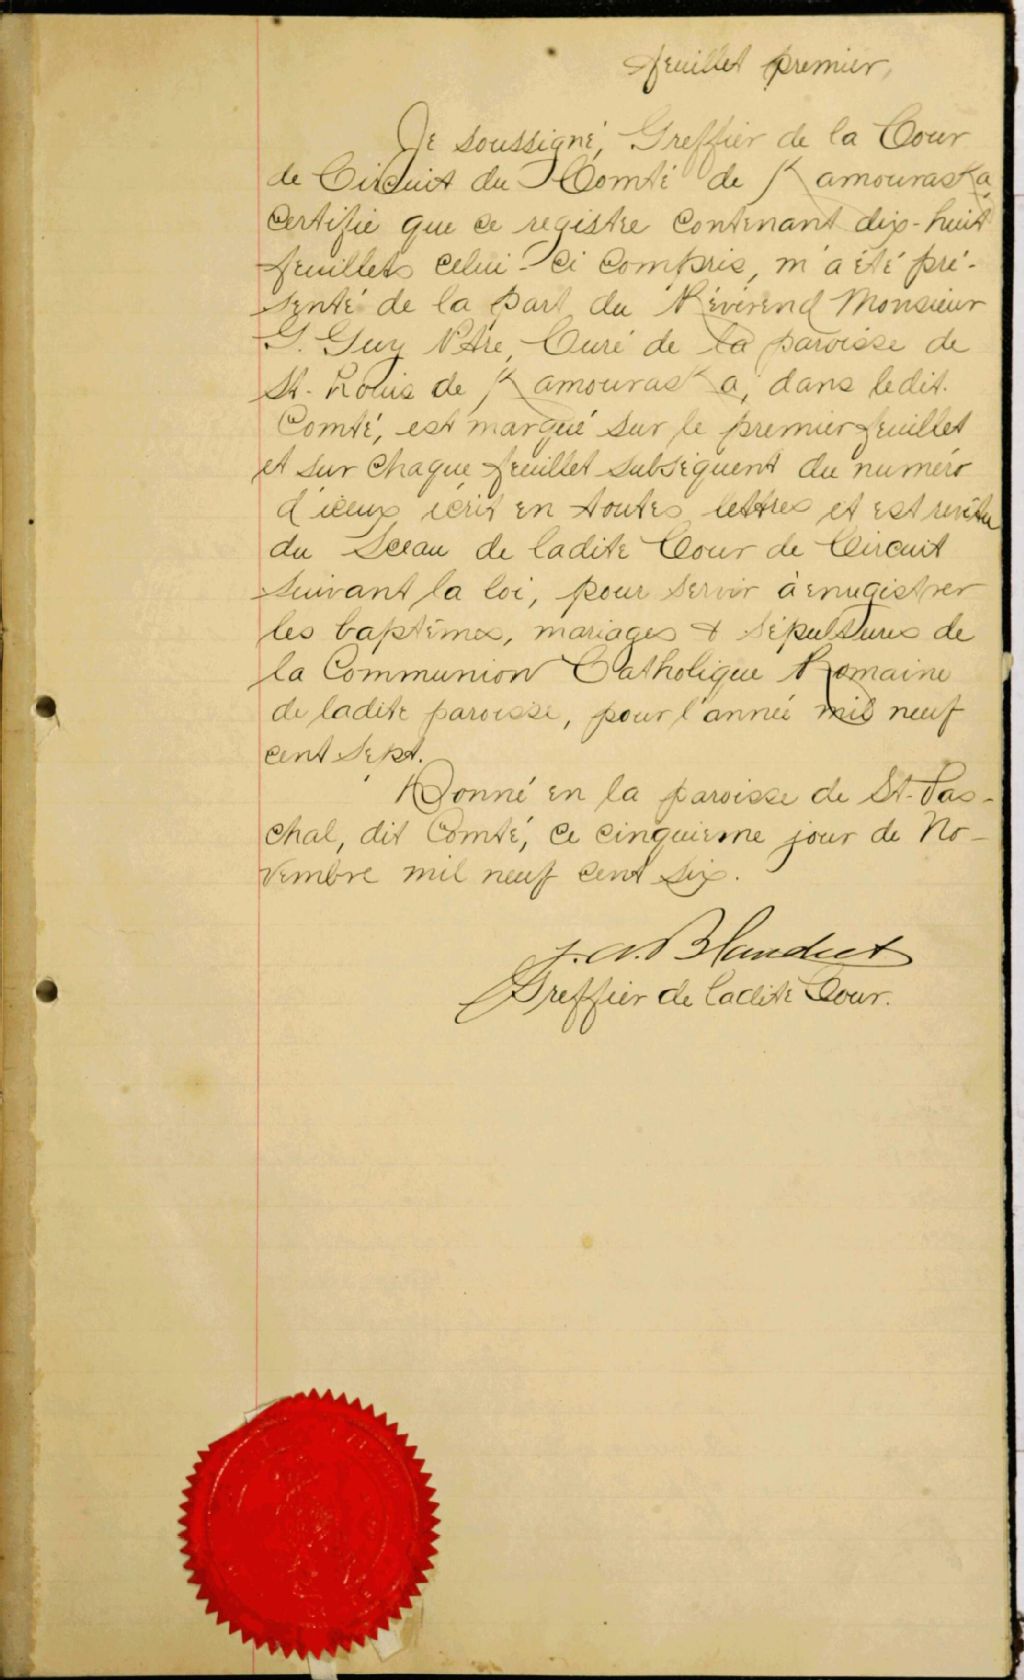 feuillet premier,
Je soussigné, Greffier de la Cour
de Circuit du Comté de Kamouraska
certifie que ce registre contenant dix-huit
feuillets celui-ci compris, m'a été pré-
senté de la part du Révérend Monsieur
G. Guy Ptre, Curé de la paroisse de
St. Louis de Kamouraska, dans ledit.
Comté, est marqué sur le premier feuillet
et sur chaque feuillet subséquent du numéro
d'iceux écrit en toutes lettres et est revêtu
du Sceau de ladite Cour de Circuit
suivant la loi, pour servir à enregistrer
les baptêmes, mariages & sépultures de
la Communion Catholique Romaine
de ladite paroisse, pour l'année mil neuf
cent sept.
Donné en la paroisse de St. Pas-
chal, dit Comté, ce cinquieme jour de No-
vembre mil neuf cent six.
J. A. Blanchet
Greffier de ladite Cour.